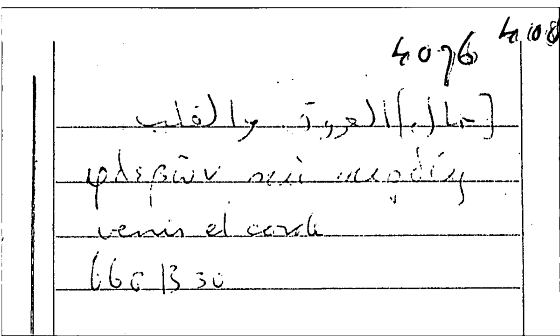 4076 4108
[حال] العروق والقلب
φλεβῶν καὶ καρδίης
venis et corde
660 B 30